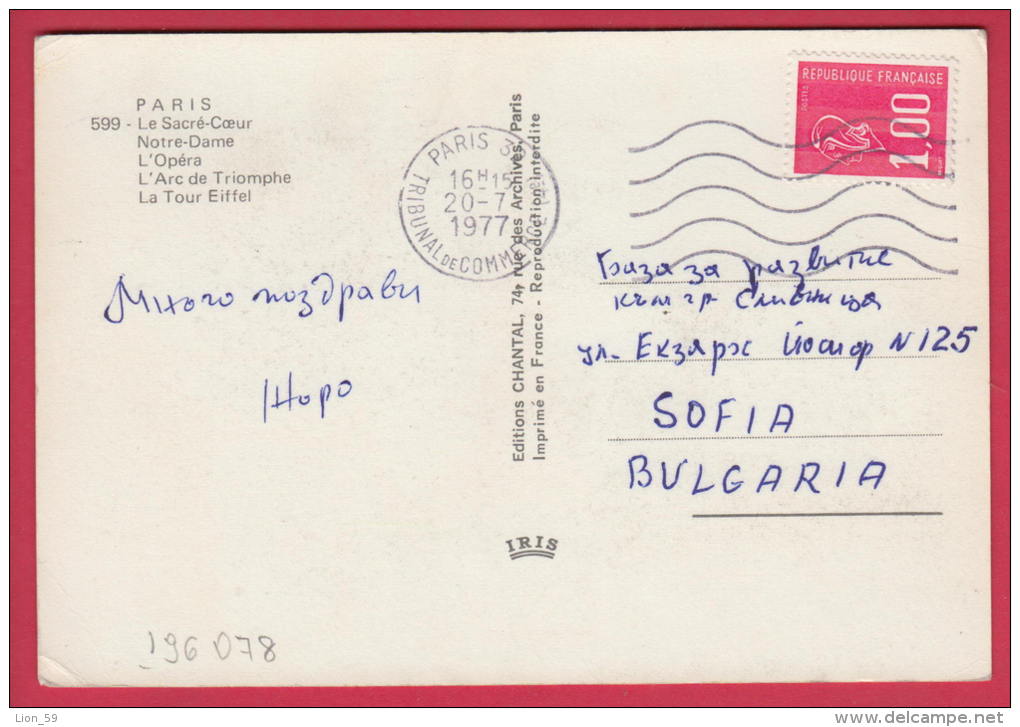 PARIS
599 - Le Sacré-Cœur
Notre-Dame
L'Opéra
L'Arc de Triomphe
La Tour Eiffel
PARIS
16H15
20-7
1977
TRIBUNAL DE COMMERCE
REPUBLIQUE FRANÇAISE
POSTES
1,00
Editions CHANTAL, 74, rue des Archives, Paris
Imprimé en France - Reproduction interdite
Много поздрави
Жоро
База за развитие
към гр Сливница
ул. Екзарх Йосиф N 125
SOFIA
BULGARIA
IRIS
196078
Lion_59
www.delcampe.net